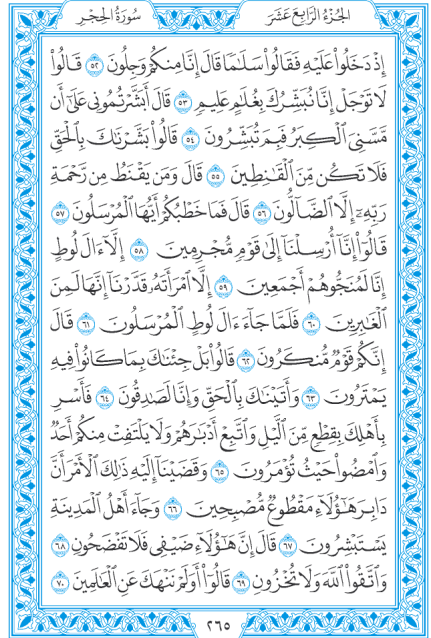 سُورَةُ الحِجْرِ الجُزْءُ الرَّابِعَ عَشَرَ
إِذْ دَخَلُوا۟ عَلَيْهِ فَقَالُوا۟ سَلَـٰمًا قَالَ إِنَّا مِنكُمْ وَجِلُونَ ٥٢ قَالُوا۟
لَا تَوْجَلْ إِنَّا نُبَشِّرُكَ بِغُلَـٰمٍ عَلِيمٍ ٥٣ قَالَ أَبَشَّرْتُمُونِى عَلَىٰٓ أَن
مَّسَّنِىَ ٱلْكِبَرُ فَبِمَ تُبَشِّرُونَ ٥٤ قَالُوا۟ بَشَّرْنَـٰكَ بِٱلْحَقِّ
فَلَا تَكُن مِّنَ ٱلْقَـٰنِطِينَ ٥٥ قَالَ وَمَن يَقْنَطُ مِن رَّحْمَةِ
رَبِّهِۦٓ إِلَّا ٱلضَّآلُّونَ ٥٦ قَالَ فَمَا خَطْبُكُمْ أَيُّهَا ٱلْمُرْسَلُونَ ٥٧
قَالُوٓا۟ إِنَّآ أُرْسِلْنَآ إِلَىٰ قَوْمٍ مُّجْرِمِينَ ٥٨ إِلَّآ ءَالَ لُوطٍ
إِنَّا لَمُنَجُّوهُمْ أَجْمَعِينَ ٥٩ إِلَّا ٱمْرَأَتَهُۥ قَدَّرْنَآ إِنَّهَا لَمِنَ
ٱلْغَـٰبِرِينَ ٦٠ فَلَمَّا جَآءَ ءَالَ لُوطٍ ٱلْمُرْسَلُونَ ٦١ قَالَ
إِنَّكُمْ قَوْمٌ مُّنكَرُونَ ٦٢ قَالُوا۟ بَلْ جِئْنَـٰكَ بِمَا كَانُوا۟ فِيهِ
يَمْتَرُونَ ٦٣ وَأَتَيْنَـٰكَ بِٱلْحَقِّ وَإِنَّا لَصَـٰدِقُونَ ٦٤ فَأَسْرِ
بِأَهْلِكَ بِقِطْعٍ مِّنَ ٱلَّيْلِ وَٱتَّبِعْ أَدْبَـٰرَهُمْ وَلَا يَلْتَفِتْ مِنكُمْ أَحَدٌ
وَٱمْضُوا۟ حَيْثُ تُؤْمَرُونَ ٦٥ وَقَضَيْنَآ إِلَيْهِ ذَٰلِكَ ٱلْأَمْرَ أَنَّ
دَابِرَ هَـٰٓؤُلَآءِ مَقْطُوعٌ مُّصْبِحِينَ ٦٦ وَجَآءَ أَهْلُ ٱلْمَدِينَةِ
يَسْتَبْشِرُونَ ٦٧ قَالَ إِنَّ هَـٰٓؤُلَآءِ ضَيْفِى فَلَا تَفْضَحُونِ ٦٨
وَٱتَّقُوا۟ ٱللَّهَ وَلَا تُخْزُونِ ٦٩ قَالُوٓا۟ أَوَلَمْ نَنْهَكَ عَنِ ٱلْعَـٰلَمِينَ ٧٠
٢٦٥